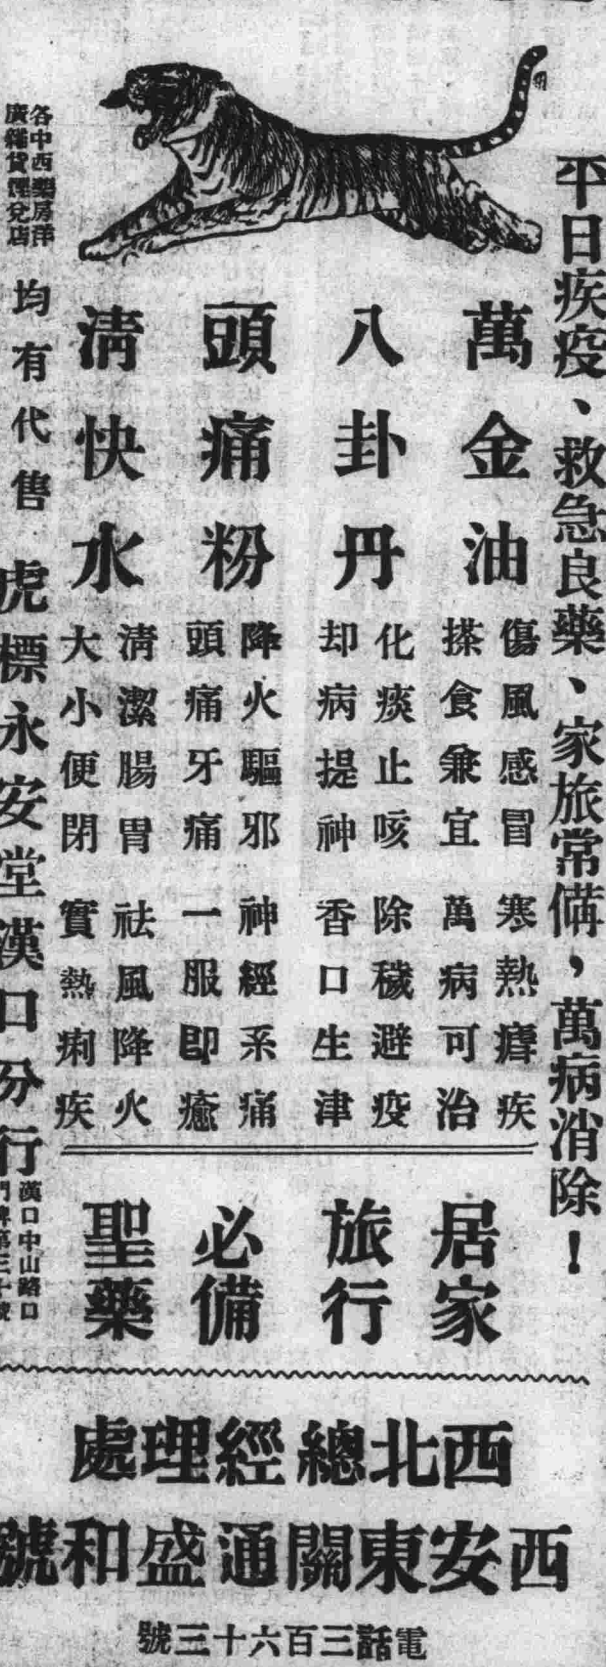 平日疾疫、救急良藥、家旅常備，萬病消除！
萬金油
傷風感冒 寒熱瘧疾
搽食兼宜 萬病可治
八卦丹
化痰止咳 除穢避疫
却病提神 香口生津
頭痛粉
降火驅邪 神經系痛
頭痛牙痛 一服即癒
清快水
清潔腸胃 祛風降火
大小便閉 實熱痢疾
居家
旅行
必備
聖藥
各中西藥房洋
廣雜貨煙兌店
均有代售
虎標永安堂漢口分行
漢口中山路口
門牌第三十號
西北總經理處
西安東關通盛和號
電話三百六十三號